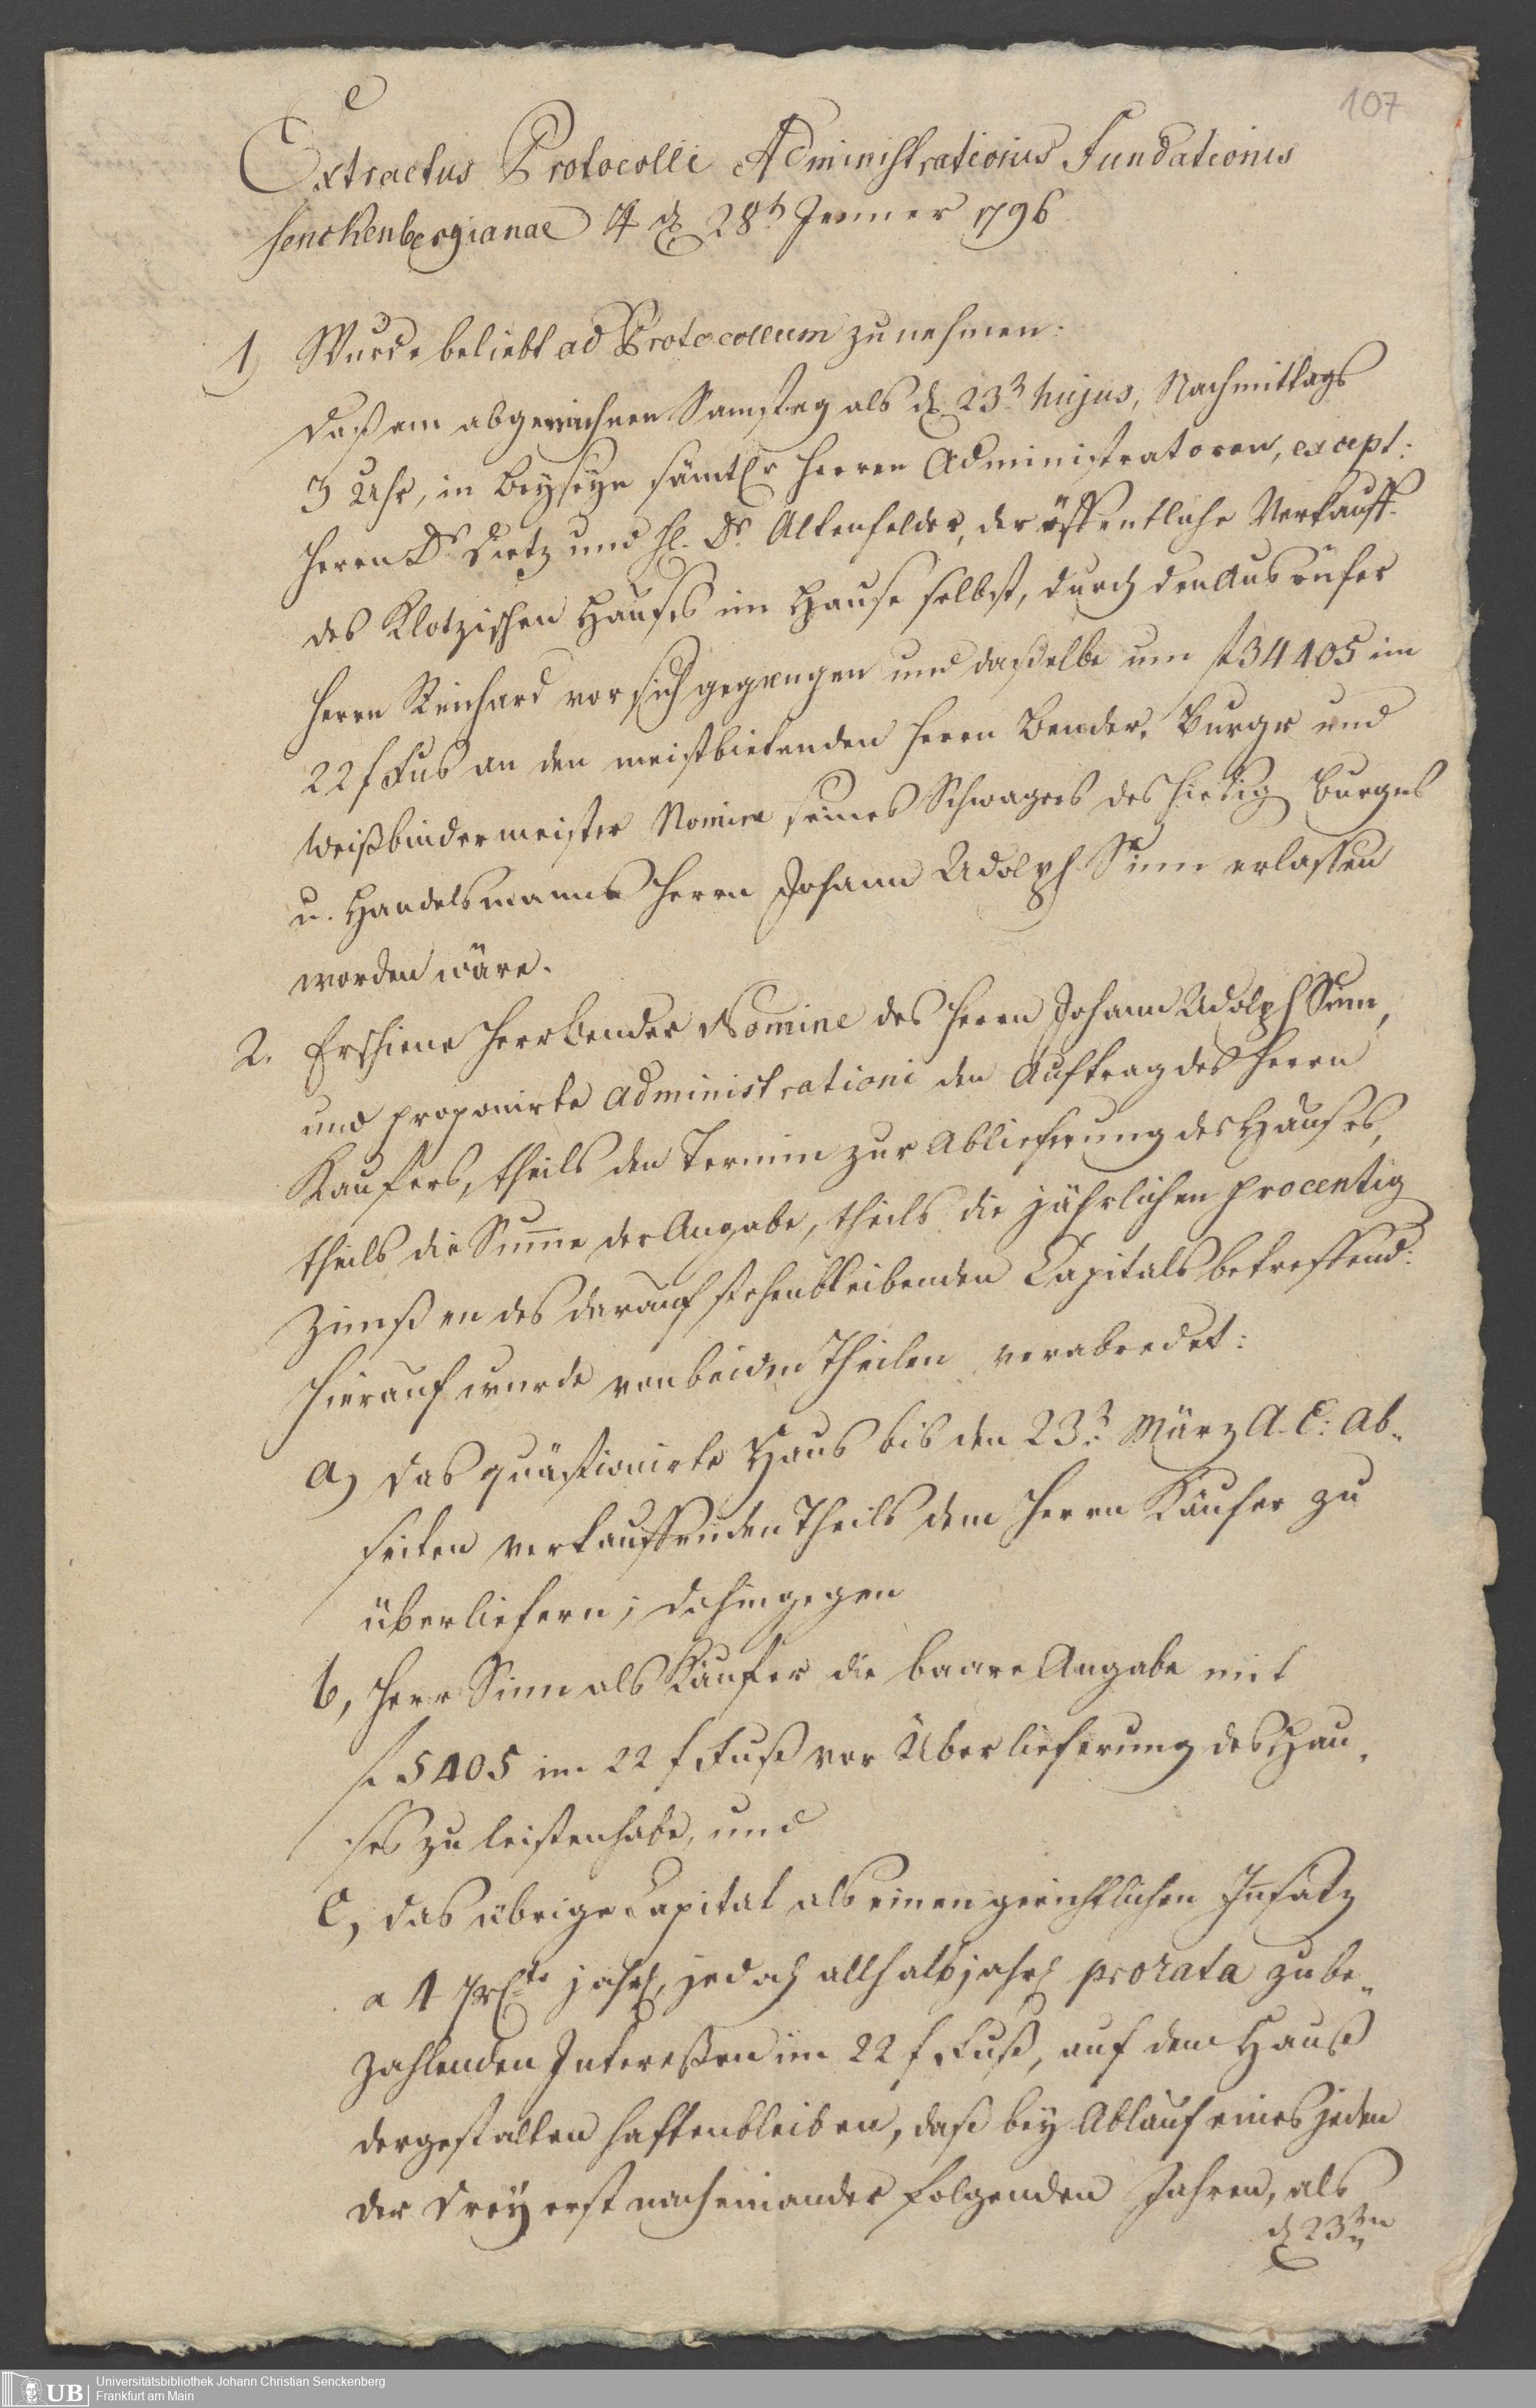 107
Extractus Protocolli Administrationis Fundationis
Senckenbergianae d. 28t Jenner 1796
1) Wurde beliebt ad Protocollum zu nehmen:
Daß am abgewichnen Samstag als d. 23t hujus, Nachmittags
3 Uhr, in Beyseyn sämtl. Herren Administratoren, except:
Herrn Dr Dietz und H. Dr. Altenfelder, der öffentliche Verkauff
des Klotzischen Hauses im Hause selbst, durch den Ausrüfer
Herrn Reinhard vor sich gegangen und dasselbe um f 34405 im
22 f Fus an den meistbietenden Herrn Bender, Burger und
Weißbindermeister Nomine seines Schwagers des hiesig Burgers
u. Handelsmanns Herrn Johann Adolph Sinn erlassen
worden wäre.
2. Erschiene Herr Bender Nomine des Herrn Johann Adolph Sinn,
und proponirte Administrationi den Auftrag des Herrn
Kaufers, theils den Termin zur Ablieferung des Hauses,
theils die Sum̄e der Angabe, theils die jährlichen procentig
Zinnßen des darauf stehenbleibenden Capitals betreffend:
Hierauf wurde von beiden Theilen verabredet:
a) das quästionirte Haus bis den 23t. März A. C: Ab-
seiten verkauffenden Theils dem Herrn Käufer zu
überliefern; dahingegen
b, Herr Sinn als Käufer die baare Angabe mit
f 5405 im 22 f Fuß vor Überlieferung des Hau-
ses zu leisten habe, und
c, das übrige Capital als einen gerichtlichen Insatz
a 4 prCto jährl, jedoch allhalbjährl prorata zu be-
zahlenden Interessen im 22 f Fuß, auf dem Hauß
dergestalten haftenbleiben, daß bey Ablauf eines jeden
der drey erst nacheinander folgenden Jahren, als
d 23ten
Universitätsbibliothek Johann Christian Senckenberg
Frankfurt am Main
UB